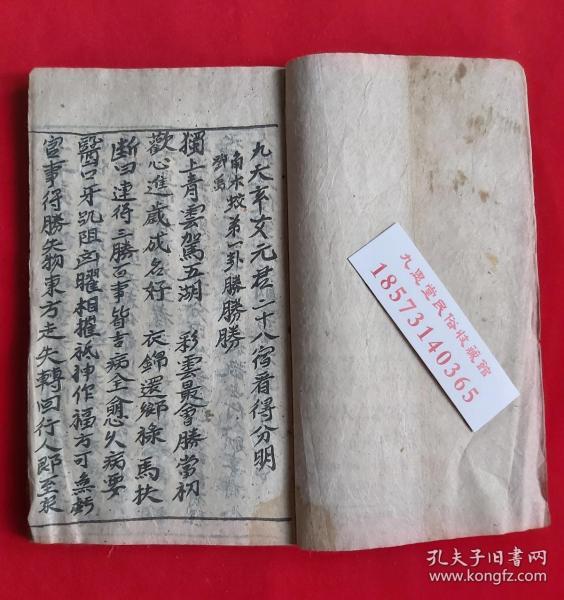 九天辛艾元君二十八宿看得分明
角木蛟 第一卦勝勝勝
獨上青雲駕五湖 彩雲最會勝當初
歡心進歲成名好 衣錦還鄉祿馬扶
断曰連得三勝百事皆吉病全愈久病要
醫口牙阻凶曜相摧祗神作福方可無虧
官事得勝失物東方走失轉回行人即至求
九思堂民俗收藏館
18573140365
孔夫子旧书网
www.kongfz.com